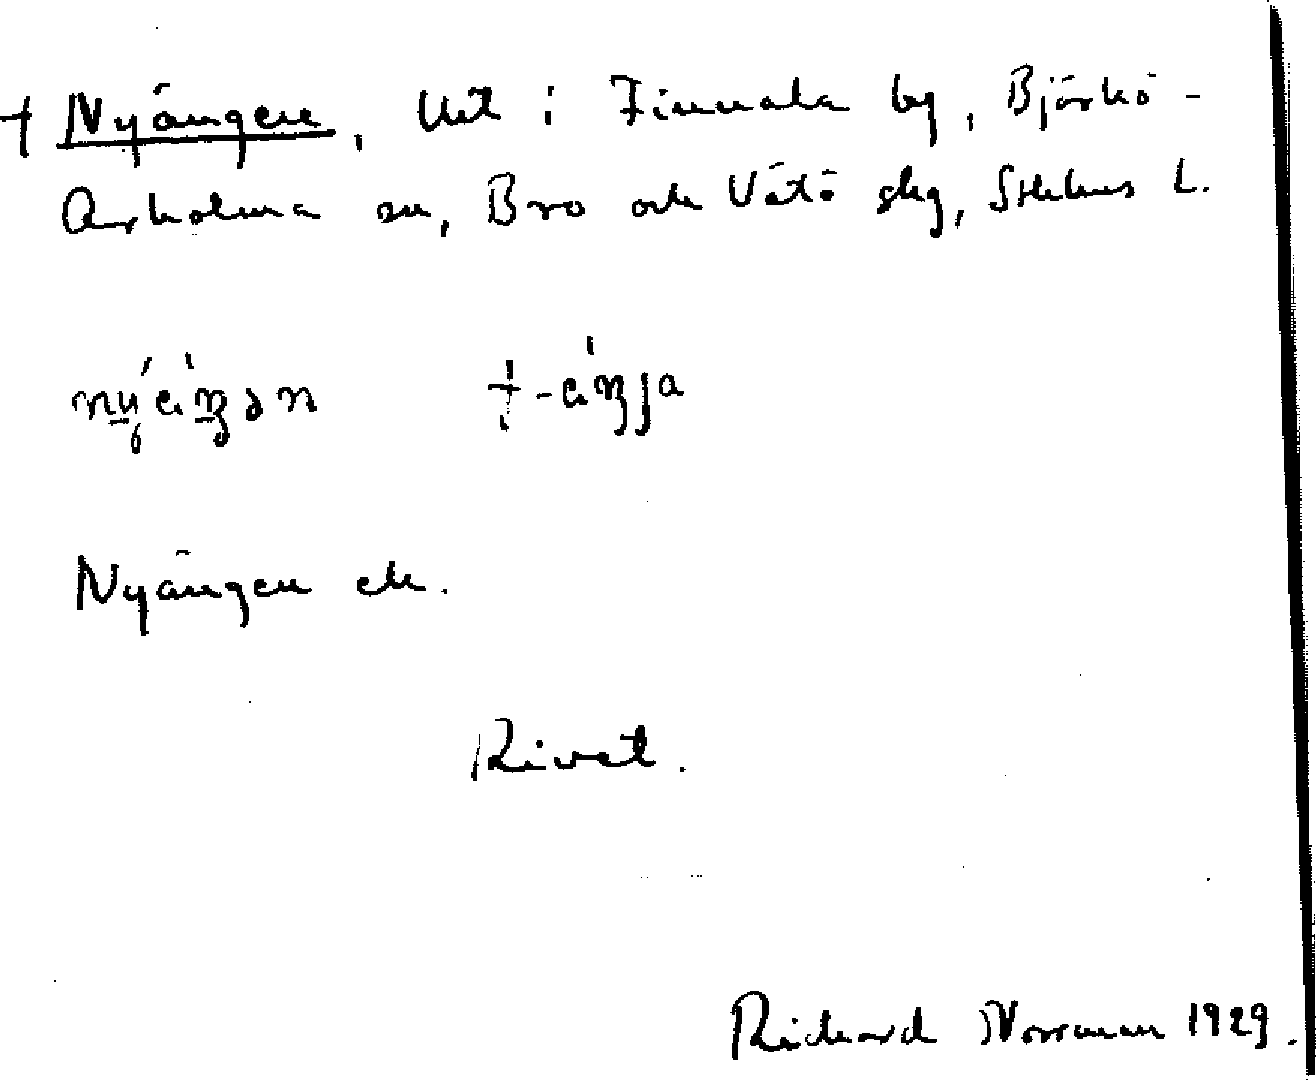 † Nyängen, lht i Finnala by, Björkö-
Arholma sn, Bro och Vätö skg, Sthlms L.
Nyängen ek.
Rivet.
Richard Norrman 1929.